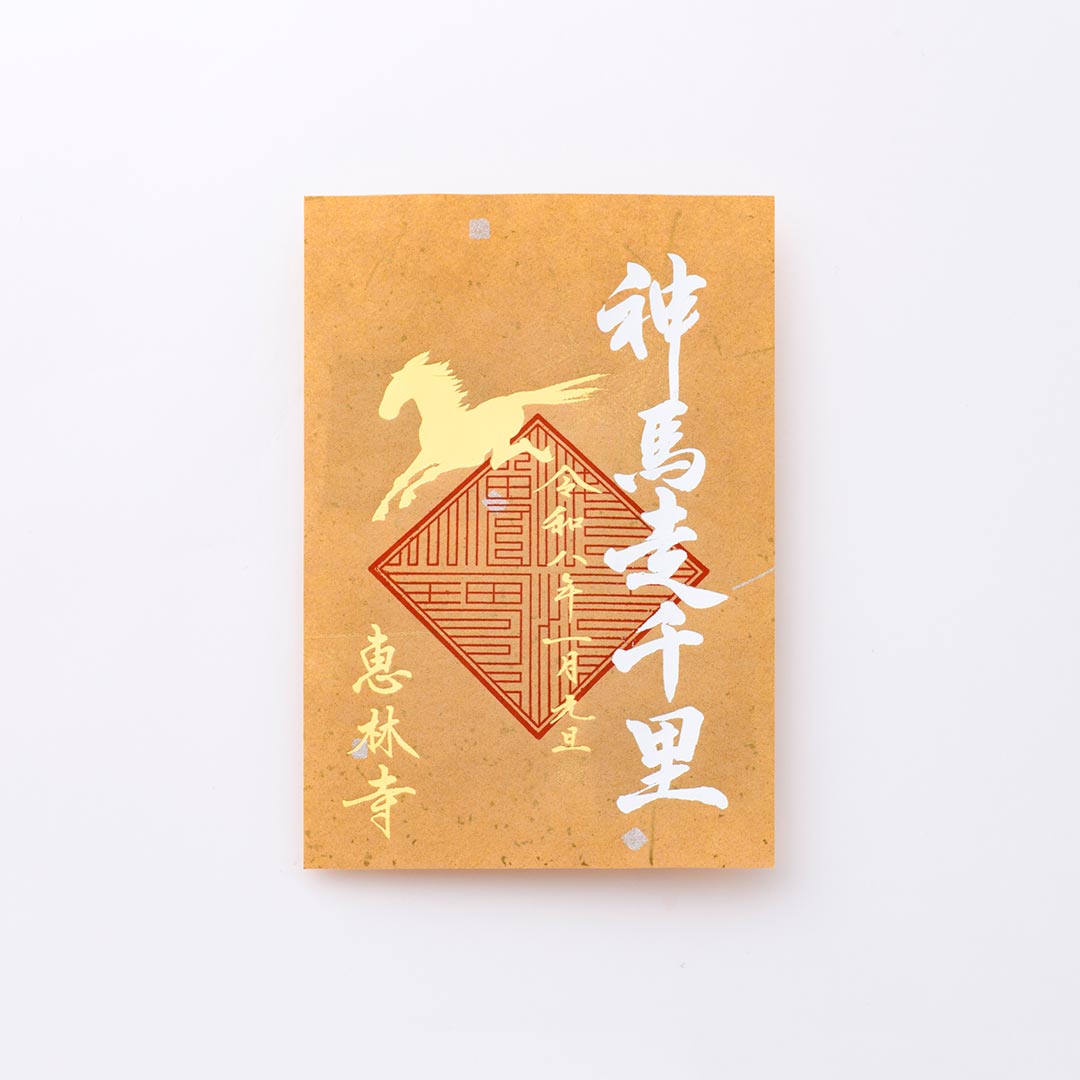 神馬走千里
令和八年一月元旦
恵林寺